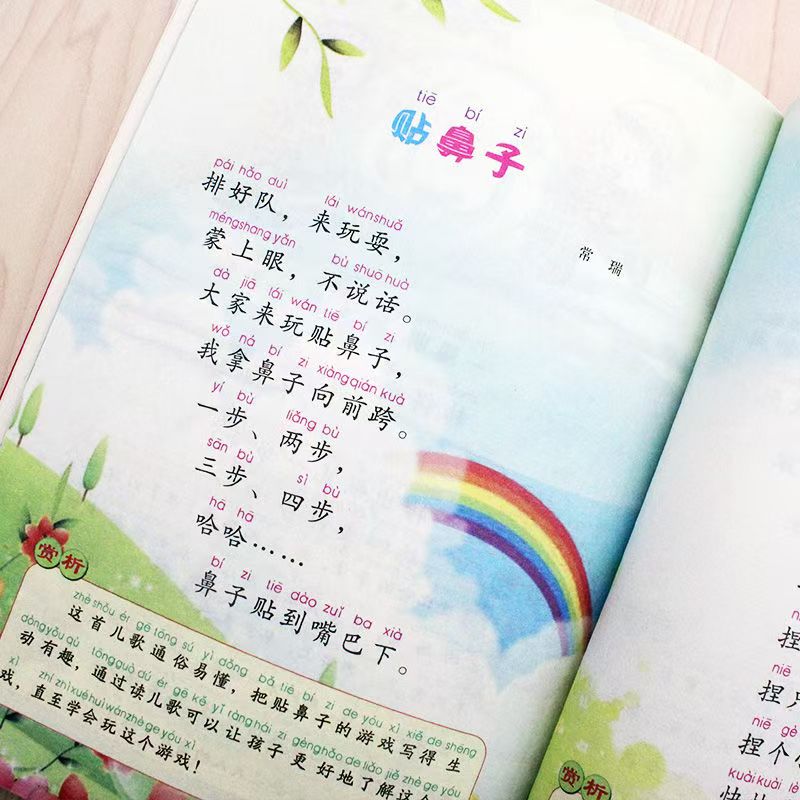 tiē bí zi
贴鼻子
常 瑞
pái hǎo duì lái wán shuǎ
排好队，来玩耍，
méng shang yǎn bù shuō huà
蒙上眼，不说话。
dà jiā lái wán tiē bí zi
大家来玩贴鼻子，
wǒ ná bí zi xiàng qián kuà
我拿鼻子向前跨。
yí bù liǎng bù
一步、两步，
sān bù sì bù
三步、四步，
hā hā
哈哈……
bí zi tiē dào zuǐ ba xià
鼻子贴到嘴巴下。
赏析
zhè shǒu ér gē tōng sú yì dǒng bǎ tiē bí zi de yóu xì xiě de shēng
这首儿歌通俗易懂，把贴鼻子的游戏写得生
dòng yǒu qù tōng guò dú ér gē kě yǐ ràng hái zi gèng hǎo de liǎo jiě zhè ge yóu
动有趣，通过读儿歌可以让孩子更好地了解这个
xì zhí zhì xué huì wán zhè ge yóu xì
戏，直至学会玩这个游戏！
捏
niē
捏只
niē gè
捏个
kuài kuài lè
赏析